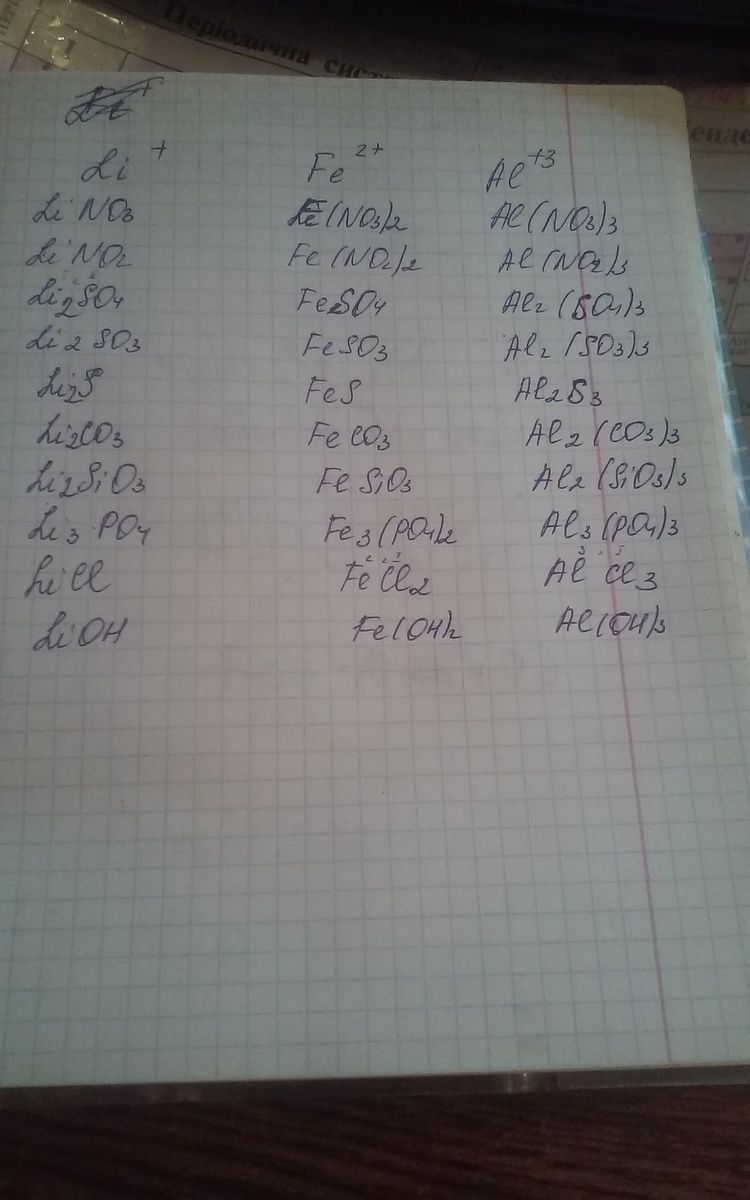 Періодична сист
Менде
Li⁺ Fe²⁺ Al⁺³
LiNO₃ Fe(NO₃)₂ Al(NO₃)₃
LiNO₂ Fe(NO₂)₂ Al(NO₂)₃
Li₂SO₄ FeSO₄ Al₂(SO₄)₃
Li₂SO₃ FeSO₃ Al₂(SO₃)₃
Li₂S FeS Al₂S₃
Li₂CO₃ FeCO₃ Al₂(CO₃)₃
Li₂SiO₃ FeSiO₃ Al₂(SiO₃)₃
Li₃PO₄ Fe₃(PO₄)₂ Al₃(PO₄)₃
LiCl FeCl₂ AlCl₃
LiOH Fe(OH)₂ Al(OH)₃